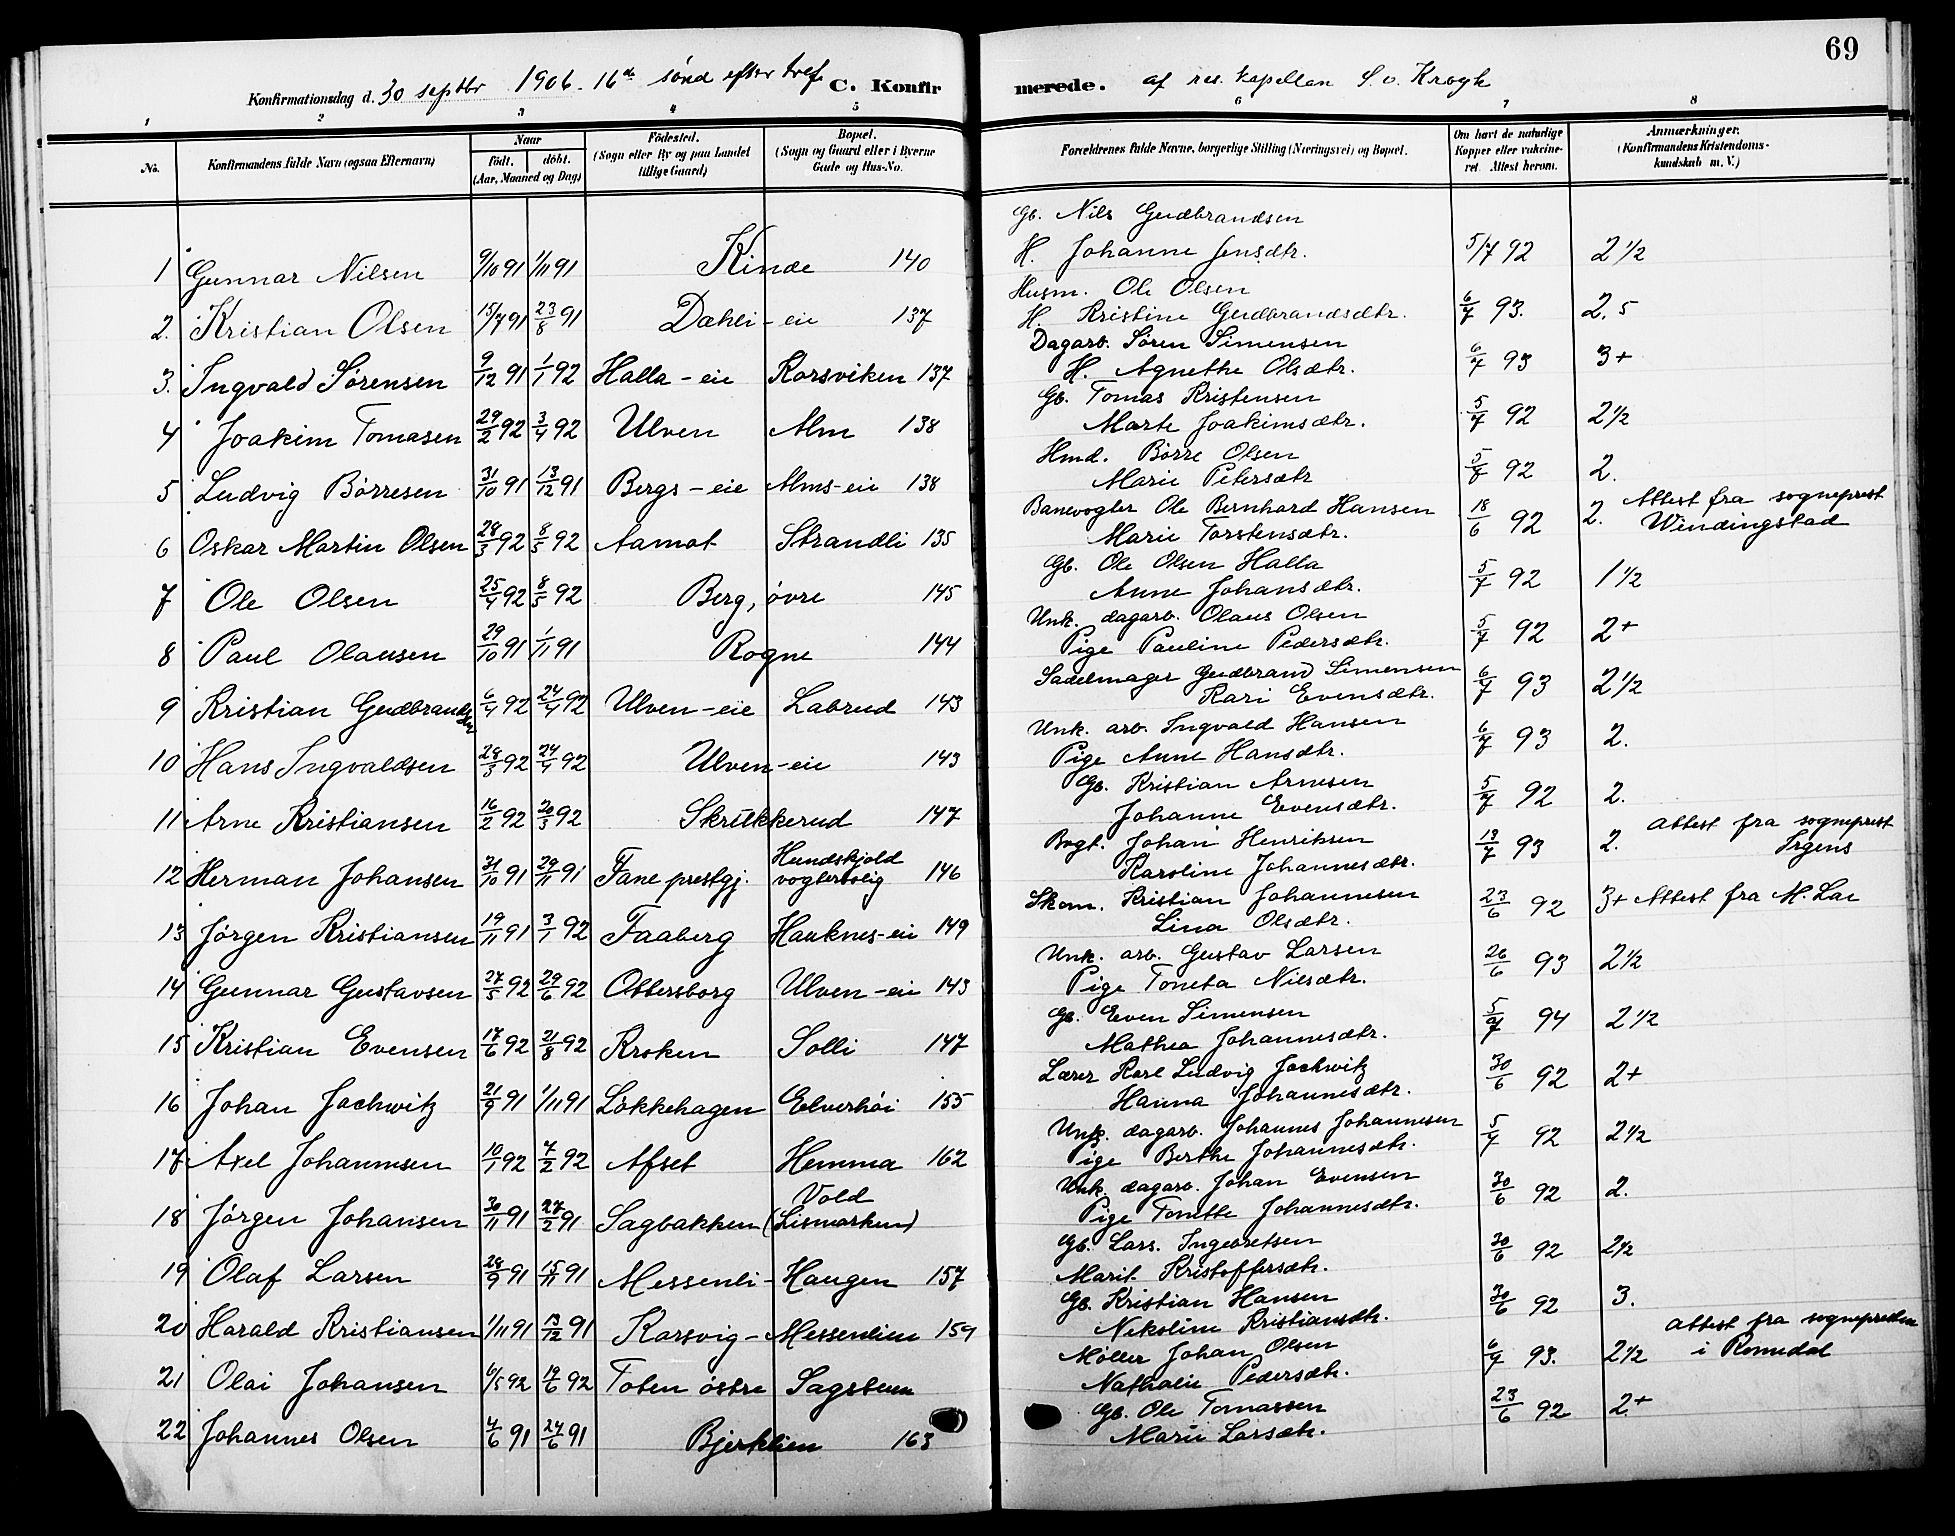 69
Konfirmationsdag d. 30 septbr 1906. 16de sönd efter tref. C. Konfirmerede. af res. kapellan S. v. Krogh
1 2 3 4 5 6 7 8
No. Konfirmandens fulde Navn (ogsaa Efternavn) Naar födt. döbt. (Aar, Maaned og Dag) Födested. (Sogn eller By og paa Landet tillige Gaard) Bopæl. (Sogn og Gaard eller i Byerne Gade og Hus-No. Forældrenes fulde Navne, borgerlige Stilling (Næringsvei) og Bopæl. Om havt de naturlige Kopper eller vakcineret. Attest herom. Anmærkninger. (Konfirmandens Kristendomskundskab m. V.)
1 Gunnar Nilsen 9/10 91 1/11 91 Kinde 140 Gb. Nils Gudbrandsen
H. Johanne Jensdtr. 5/7 92 2 1/2
2. Kristian Olsen 15/7 91 23/8 91 Dæhli-eie 137 Husm. Ole Olsen
H. Kristine Gudbrandsdtr. 6/7 93. 2,5
3. Ingvald Sørensen 9/12 91 1/1 92 Halla-eie Korsviken 137 Dagarb. Søren Simensen
H. Agnethe Olsdtr. 6/7 93 3+
4 Joakim Tomasen 29/2 92 3/4 92 Ulven Alm 138 Gb. Tomas Kristensen
Marte Joakimsdtr. 5/7 92 2 1/2
5 Ludvig Börresen 31/10 91 13/12 91 Bergs-eie Alms-eie 138 Hmd. Börre Olsen
Marie Petersdtr 5/7 92 2.
6 Oskar Martin Olsen 28/3 92 8/5 92 Aamot Strandli 135 Banevogter Ole Bernhard Hansen
Marie Torstensdtr. 18/6 92 2. Attest fra sogneprest
Wendingstad
7 Ole Olsen 25/4 92 8/5 92 Berg, övre 145 Gb. Ole Olsen Halla
Anne Johansdtr. 5/7 92 1 1/2
8 Paul Olausen 29/10 91 1/11 91 Rogne 144 Unk. dagarb. Olaus Olsen
Pige Pauline Pedersdtr. 5/7 92 2+
9 Kristian Gudbrandsen 6/4 92 24/4 92 Ulven-eie Labrud 143 Sadelmager Gudbrand Simensen
Kari Evensdtr. 6/7 93 2 1/2
10 Hans Ingvaldsen 28/3 92 24/4 92 Ulven-eie 143 Unk. arb. Ingvald Hansen
Pige Anne Hansdtr. 6/7 93 2.
11 Arne Kristiansen 16/2 92 20/3 92 Skrukkerud 147 Gb. Kristian Arnesen
Johanne Evensdtr. 5/7 92 2.
12 Herman Johansen 31/10 91 29/11 91 Fane prestgj. Hundskjold
vogterbolig 146 Bvgt. Johan Henriksen
Karoline Johannesdtr. 13/7 93 2. Attest fra sogneprest
Irgens
13 Jörgen Kristiansen 19/11 91 3/1 92 Faaberg Hauknes-eie 149 Skom. Kristian Johannesen
Lina Olsdtr. 23/6 92 3+ Attest fra M. Lae
14 Gunnar Gustavsen 27/5 92 29/6 92 Ottersborg Ulven-eie 143 Unk. arb. Gustav Larsen
Pige Toneta Nilsdtr. 26/6 93 2 1/2
15 Kristian Evensen 17/6 92 21/8 92 Kroken Solli 147 Gb. Even Simensen
Mathea Johannesdtr. 5/7 94 2 1/2
16 Johan Jochwitz 21/9 91 1/11 91 Lökkehagen Elverhöi 155 Lærer Karl Ludvig Jochwitz
Hanna Johannesdtr. 30/6 92 2+
17 Axel Johannesen 10/1 92 7/2 92 Afset Hemma 162 Unk. dagarb. Johannes Johannesen
Pige Berthe Johannesdtr. 5/7 92 2 1/2
18 Jörgen Johansen 30/11 91 27/2 91 Sagbakken Vold
(Lismarken) Unk. dagarb. Johan Evensen
Pige Tonette Johannesdtr. 30/6 92 2.
19 Olaf Larsen 28/9 91 15/11 91 Messenli-Haugen 157 Gb. Lars. Ingebretsen
Marit Kristoffersdtr. 30/6 92 2 1/2
20 Harald Kristiansen 1/11 91 13/12 91 Korsvig-Messenlien 159 Gb. Kristian Hansen
Nikoline Kristiansdtr. 30/6 92 3.
21 Olai Johansen 4/5 92 19/6 92 Toten östre Sagstuen Möller Johan Olsen
Nathalie Pedersdtr. 6/7 93. 2 1/2 Attest fra sognepresten
i Romedal
22 Johannes Olsen 4/6 91 24/6 91 Bjerklien 163 Gb. Ole Tomassen
Marie Larsdtr. 23/6 92 2+